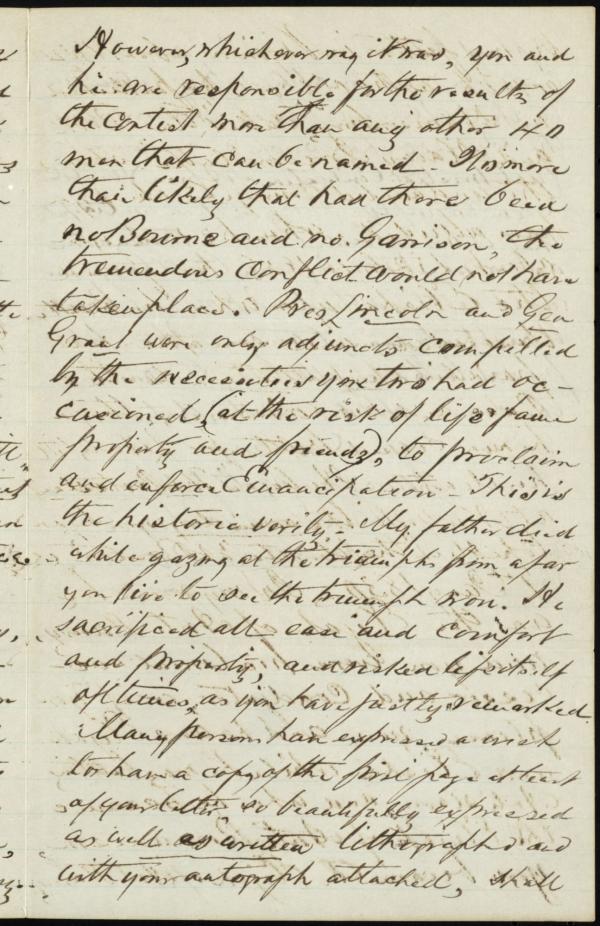 However, whichever way it was, you and
he are responsible for the results of
the contest more than any other 40
men that can be named - Tis more
than likely that had there been
no Bourne and no Garrison, the
tremendous conflict would not have
taken place. Pres Lincoln and Gen
Grant were only adjuncts compelled
by the necessities you two had oc-
casioned, (at the risk of life fame
property and friends), to proclaim
and enforce Emancipation - This is
the historic verity - My father died
while gazing at the triumph from afar
you live to see the triumph won. He
sacrificed all ease and comfort
and property, and risked life itself
oftimes, as you have justly remarked.
Many persons have expressed a wish
to have a copy of the first page at least
of your letter, so beautifully expressed
as well as written lithographed and
with your autograph attached, shall